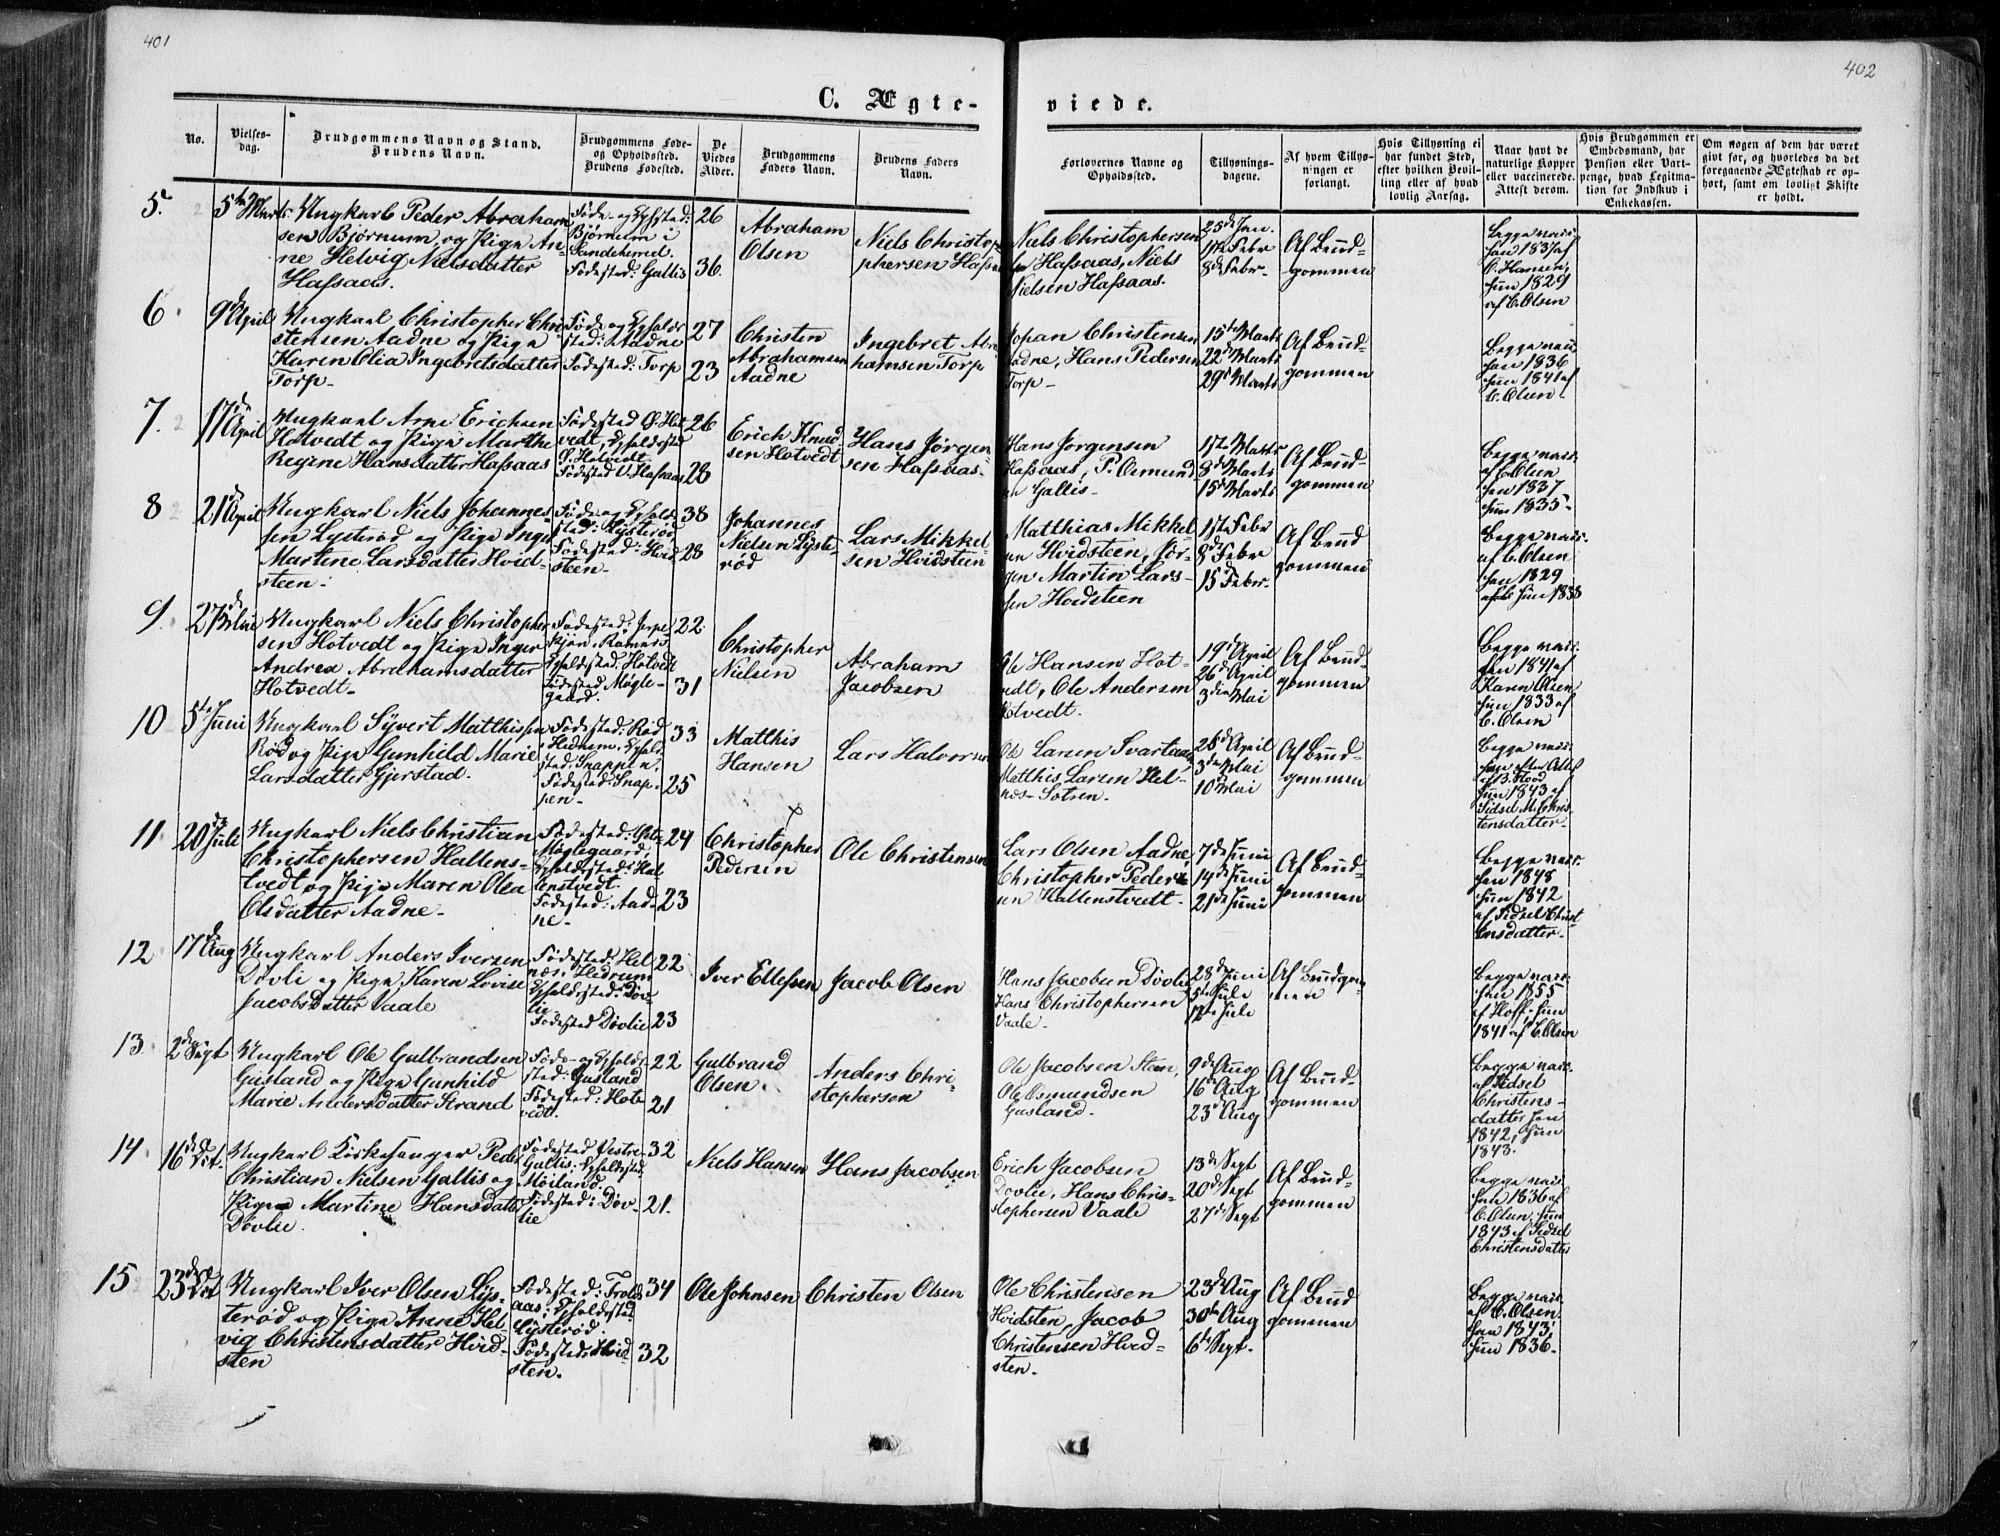 401
402
C. Ægte-
viede.
No.
Vielses-
dag.
Brudgommens Navn og Stand.
Brudens Navn.
Brudgommens Føde-
og Opholdssted.
Brudens Fødested.
De
Viedes
Alder.
Brudgommens
Faders Navn.
Brudens Faders
Navn.
Forlovernes Navne og
Opholdssted.
Tillysnings-
dagene.
Af hvem Tillys-
ningen er
forlangt.
Hvis Tillysning ei
har fundet Sted,
efter hvilken Bevil-
ling eller af hvad
lovlig Aarsag.
Naar havt de
naturlige Kopper
eller vaccinerede.
Attest derom.
Hvis Brudgommen er
Embedsmand, har
Pension eller Vart-
penge, hvad Legitima-
tion for Indskud i
Enkekassen.
Om nogen af dem har været
givt før, og hvorledes da det
foregaaende Ægteskab er op-
hørt, samt om lovligt Skifte
er holdt.
5.
5te Marts
Ungkarl Peder Abraham
sen Bjørnum og Pige An-
ne Helvig Nielsdatter
Hafsaas.
Bjørnum i
Sandeherred.
Fødested: Gallis
26
36
Abraham
Olsen
Niels Christop-
phersen Hafsa
Niels Christophersen
Hafsaas, Niels
Nielsen Hafsaas.
25de Jan.
1ste Febr
8de Febr.
Af Brud-
gommen
Begge vacc.
han 1837 af
C. Hansen,
hun 1829
af C. Olsen
6.
9de April
Ungkarl Christopher Chri-
stensen Aadne og Pige
Karen Olia Ingebretsdatter
Torp.
Føde og Ophold-
sted: Aadne
Fødested: Torp
27
23
Christen
Abrahamsen
Aadne
Ingebret Abra
hamsen Torp
Johan Christensen
Aadne, Hans Pedersen
Torp
15de Marts
22de Marts
29de Marts
Af Brud-
gommen
Begge vacc.
han 1836
hun 1841 af
C. Olsen
7.
17de April
Ungkarl Arne Erichsen
Hotvedt og Pige Marthe
Regine Hansdatter Hafsaas
Fødested Ø. Hot
vedt, Opholdssted
Ø. Hotvedt
Fødested V. Hafsaas
26
28
Erich Knud
sen Hotvedt
Hans Jørgen-
sen Hafsaas.
Hans Jørgensen
Hafsaas, P. Osmund
sen Gallis
1ste Marts
8de Marts
15de Marts
Af Brud-
gommen
Begge vacc.
af C. Olsen
han 1837
hun 1835.
8
21de April
Ungkarl Niels Johannes-
sen Lysterød og Pige Inger
Martine Larsdatter Hvid-
steen.
Føde og Ophold-
sted: Lysterød
Fødested: Hvid
steen
38
28
Johannes
Nielsen Lyste-
rød
Lars Mikkel-
sen Hvidsteen
Matthias Mikkel
sen Hvidsteen, Jør-
gen Martin Lars-
sen Hvidsteen
1ste Febr
8de Febr
15de Febr.
Af Brud
gommen
Begge vacc.
af C. Olsen
han 1829
hun 1838
9.
27de Mai
Ungkarl Niels Christopher
sen Hotvedt og Pige Inger
Andrea Abrahamsdatter
Hotvedt.
Opholdsted: Hotvedt
Fødested Møgle-
gaard.
22
31
Christopher
Nielsen
Abraham
Jacobsen
Ole Hansen Hot-
vedt, Ole Andersen
Hotvedt.
19de April
26de April
3die Mai
Af Brud-
gommen
Begge vacc.
han 1841 af
Karen Olsen
hun 1833 af
C. Olsen
10
5te Juni
Ungkarl Syvert Matthisen
Rød og Pige Gunhild Marie
Larsdatter Gjerstad.
Fødested: Rød
i Hedrum. Ophold-
sted: Snappen.
Fødested: Snap-
pen.
33
25
Matthis
Hansen
Lars Halvorsen
Ole Larsen Svartaas,
Matthis Larsen Hel-
næs-Sotsen.
26de April
3die Mai
10de Mai
Af Brud-
gommen
Begge vacc.
han efter Attest
af B. Hood
hun 1843 af
Sidsel M. Chris
tensdatter
11.
20de Juli
Ungkarl Niels Christian
Christophersen Hallens-
tvedt og Pige Maren Olea
Olsdatter Aadne.
Fødested: Østre
Møglegaard,
Opholdssted: Hal
lenstvedt.
Fødested: Aad-
ne.
24
23
Christopher
Pedersen
Ole Christensen
Lars Olsen Aadne,
Christopher Peder-
sen Hallenstvedt.
7de Juni
14de Juni
21de Juni
Af Brud-
gommen
Begge vacc.
han 1848
hun 1842
af Sidsel Christ
ensdatter
12
17de Aug
Ungkarl Anders Iversen
Døvli og Pige Karen Lovise
Jacobsdatter Vaale
Fødested: Hel
næs i Hedrum
Opholdssted: Døv-
lie
Fødested Døvlie
22
23
Iver Ellefsen
Jacob Olsen
Hans Jacobsen Døvlie
Hans Christophersen
Vaale.
28de Juni
5te Jule
12te Jule
Af Brudgom
men
Begge vacc.
han 1855
af Hoff, hun
1841 af C. Olsen
13.
2den Sept
Ungkarl Ole Gulbrandsen
Gusland og Pige Gunhild
Marie Andersdatter Strand
Føde- og Opholds-
sted: Gusland
Fødested: Hot-
vedt.
22
21
Gulbrand
Olsen.
Anders Chri-
stophersen
Ole Jacobsen Steen,
Ole Osmundsen
Gusland.
9de Aug
16de Aug
23de Aug
Af Brud-
gommen
Begge vacc.
af Sidsel
Christens-
datter, han
1842, hun
1843.
14.
16de Oct.
Ungkarl Kirkesanger Peder
Christian Nielsen Gallis og
Pige Martine Hansdatter
Døvlie.
Fødested Vestre
Gallis. Opholdssted
Møiland.
Fødested: Døv-
lie
32
21.
Niels Hansen
Hans Jacobsen
Erich Jacobsen
Dovlie, Hans Chris-
stophersen Vaale
13de Sept
20de Sept
27de Sept
Af Brud-
gommen
Begge vacc.
han 1836 af
C. Olsen, hun
1843 af Sidsel
Christensdatter
15
23de Oct
Ungkarl Iver Olsen Lys-
terød og Pige Anne Hel-
vig Christensdatter Hvid-
sten
Fødested: Trolds
aas: Opholdssted
Lysterød.
Fødested: Hvid-
sten.
34
32
Ole Johnsen
Christen Olsen
Ole Christensen
Hvidsten, Jacob
Christensen Hvid-
sten.
23de Aug
30te Aug
6te Sept.
Af Brud
gommen
Begge vacc.
af C. Olsen
han 1843,
hun 1836.